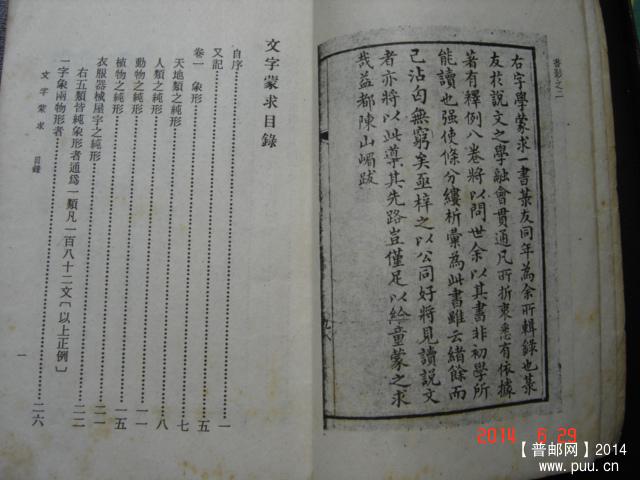 書影之二
右字學蒙求一書菉友同年為余所輯錄也菉
友於說文之學融會貫通凡所折衷悉有依據
著有釋例八卷將以問世余以其書非初學所
能讀也强使條分縷析彙為此書雖云緒餘而
已沾匄無窮矣亟梓之以公同好將見讀說文
者亦將以此導其先路豈僅足以給童蒙之求
哉益都陳山嵋跋
文字蒙求目錄
自序……一
又記
卷一 象形……五
天地類之純形……七
人類之純形……八
動物之純形……一一
植物之純形……一五
衣服器械屋宇之純形……二一
右五類皆純象形者通爲一類凡一百八十二文〔以上正例〕……二二
一字象兩物形者……二六
文字蒙求 目錄
一
2014 6 29
【普邮网】2014
www.puu.cn